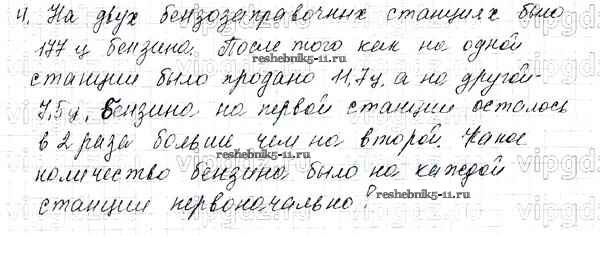 4. На двух бензозаправочных станциях было
177 ц бензина. После того как на одной
reshebnik5-11.ru
станции было продано 11,7ц, а на другой-
7,5ц, бензина на первой станции осталось
в 2 раза больше, чем на второй. Какое
reshebnik5-11.ru
количество бензина было на каждой
reshebnik5-11.ru
станции первоначально?